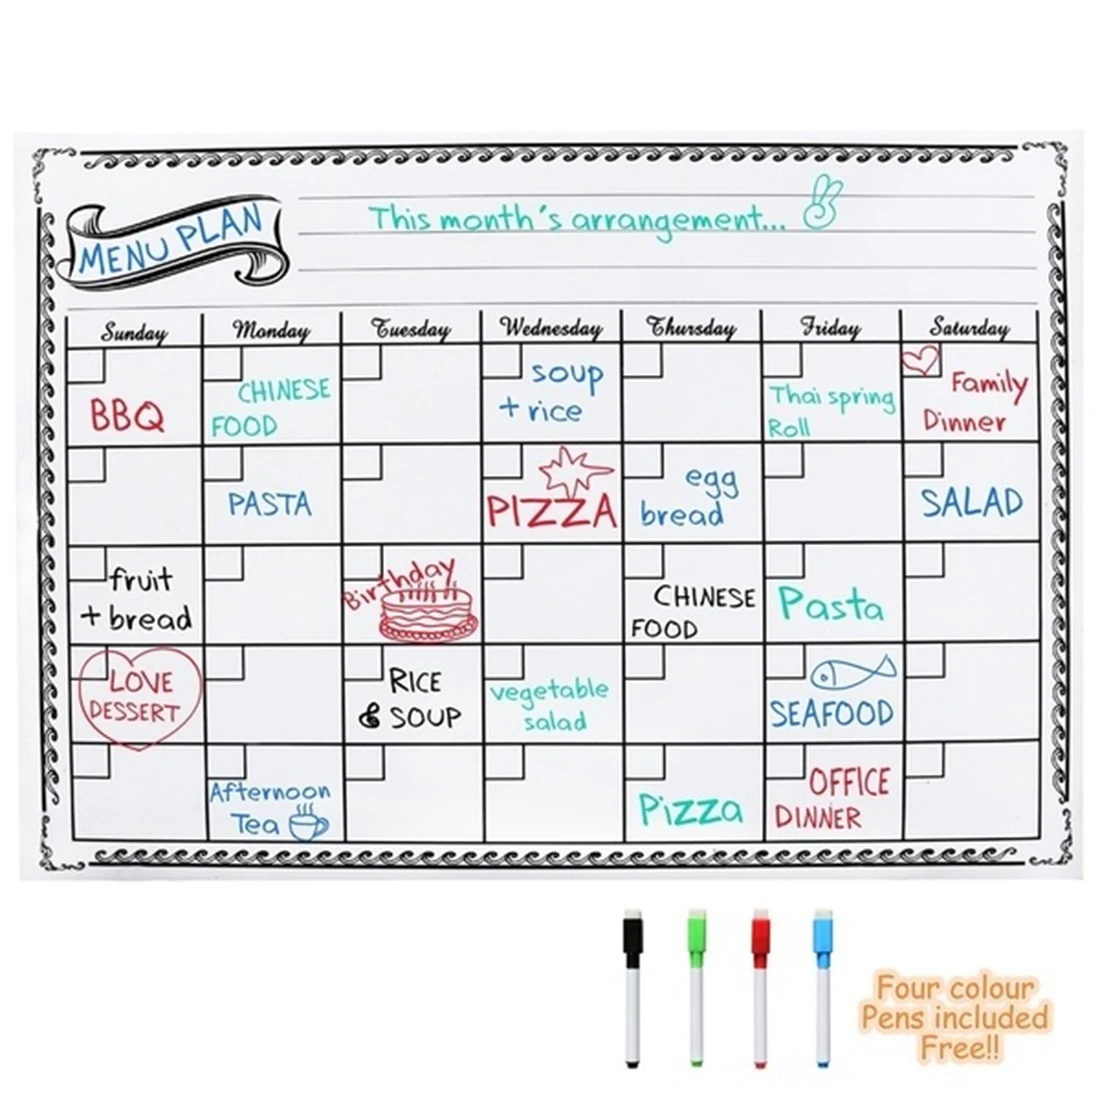 MENU PLAN
This month's arrangement...
Sunday
Monday
Tuesday
Wednesday
Thursday
Friday
Saturday
BBQ
CHINESE
FOOD
soup
+ rice
Thai spring
Roll
Family
Dinner
PASTA
PIZZA
egg
bread
SALAD
fruit
+ bread
Birthday
CHINESE
FOOD
Pasta
LOVE
DESSERT
RICE
& SOUP
vegetable
salad
SEAFOOD
Afternoon
Tea
Pizza
OFFICE
DINNER
Four colour
Pens included
Free!!